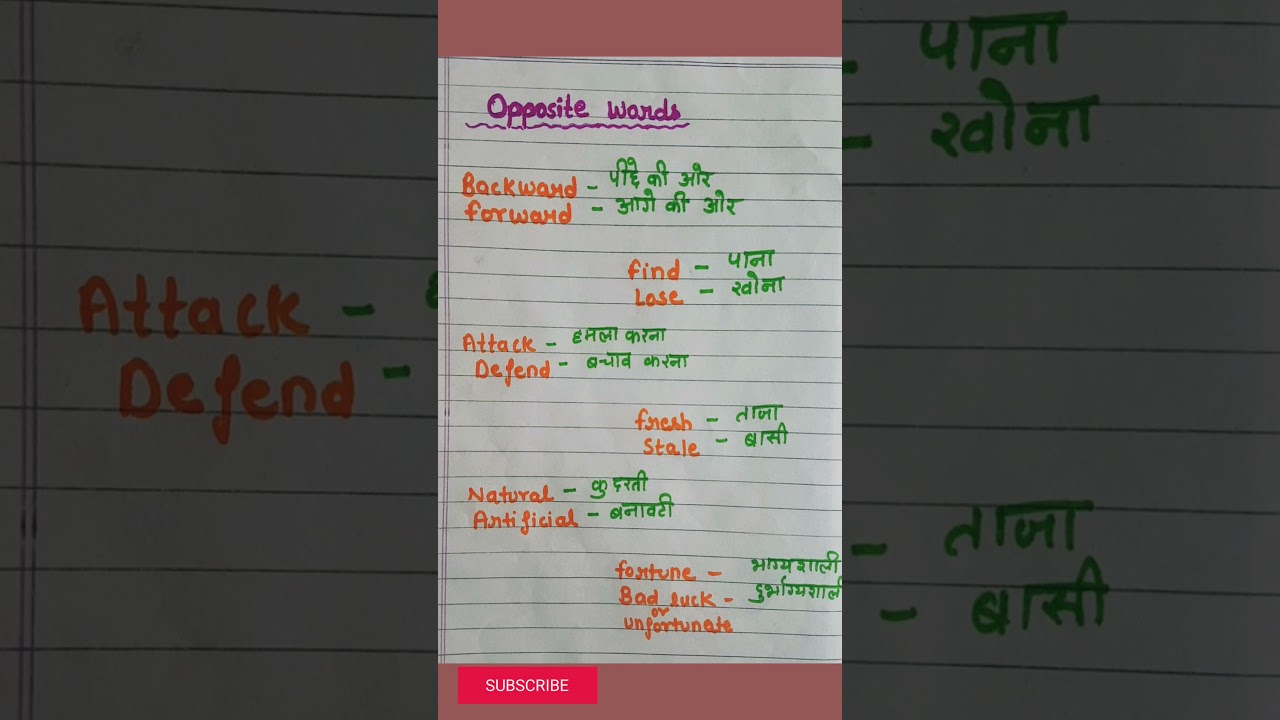 Opposite Words
Backward - पीछे की और
forward - आगे की ओर
find - पाना
Lose - खोना
Attack - हमला करना
Defend - बचाव करना
fresh - ताजा
Stale - बासी
Natural - कुदरती
Artificial - बनावटी
fortune - भाग्यशाली
Bad luck - दुर्भाग्यशाली
or
unfortunate
SUBSCRIBE
Attack -
Defend -
- पाना
- खोना
- ताजा
- बासी